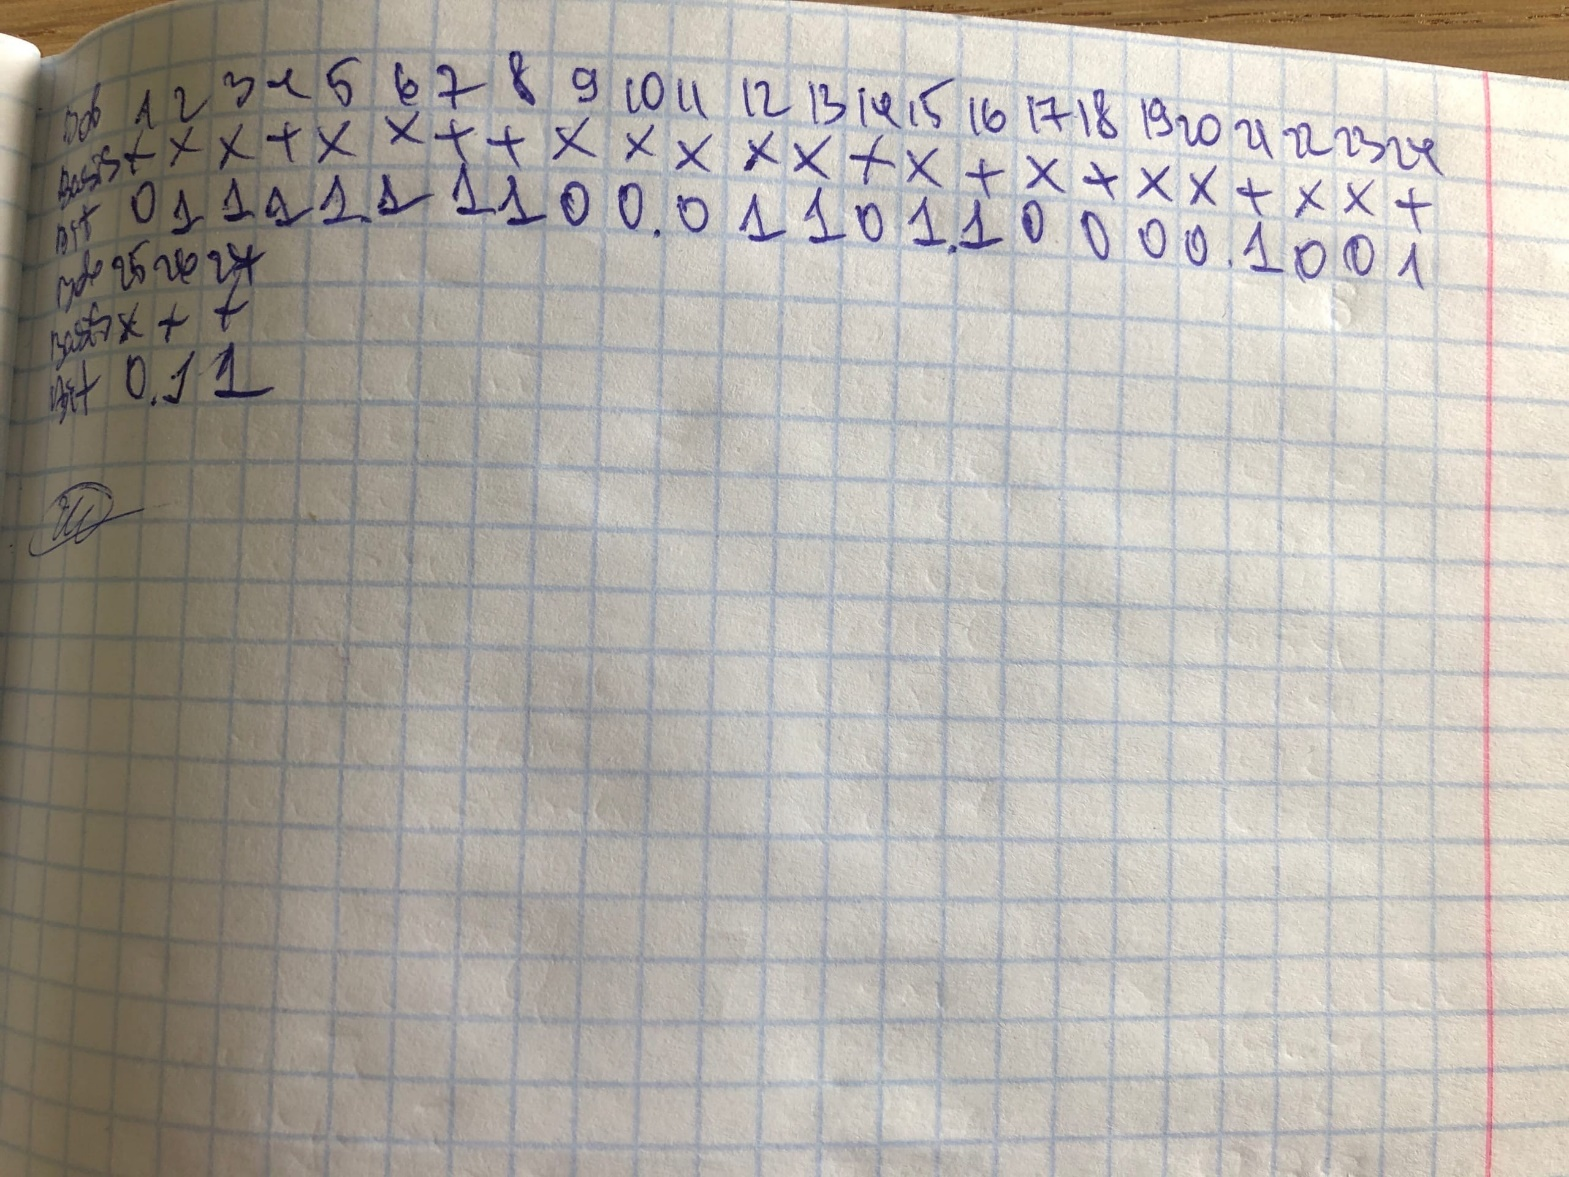 Bob 1 2 3 4 5 6 7 8 9 10 11 12 13 14 15 16 17 18 19 20 21 22 23 24
Basis + x x + x x + + x x x x x + x + x + x x + x x +
Bit 0 1 1 1 1 1 1 1 0 0 . 0 1 1 0 1 . 1 0 0 0 0 . 1 0 0 1
Bob 25 26 27
Basis x + +
Bit 0 . 1 1